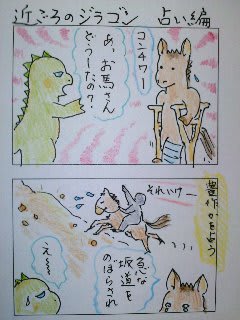 近ごろのジラゴン 占い編
コンチワー
あ、お馬さん
どぅーしたの？
豊作かを占う
それいけー
急な
坂道を
のぼらされ
え〜